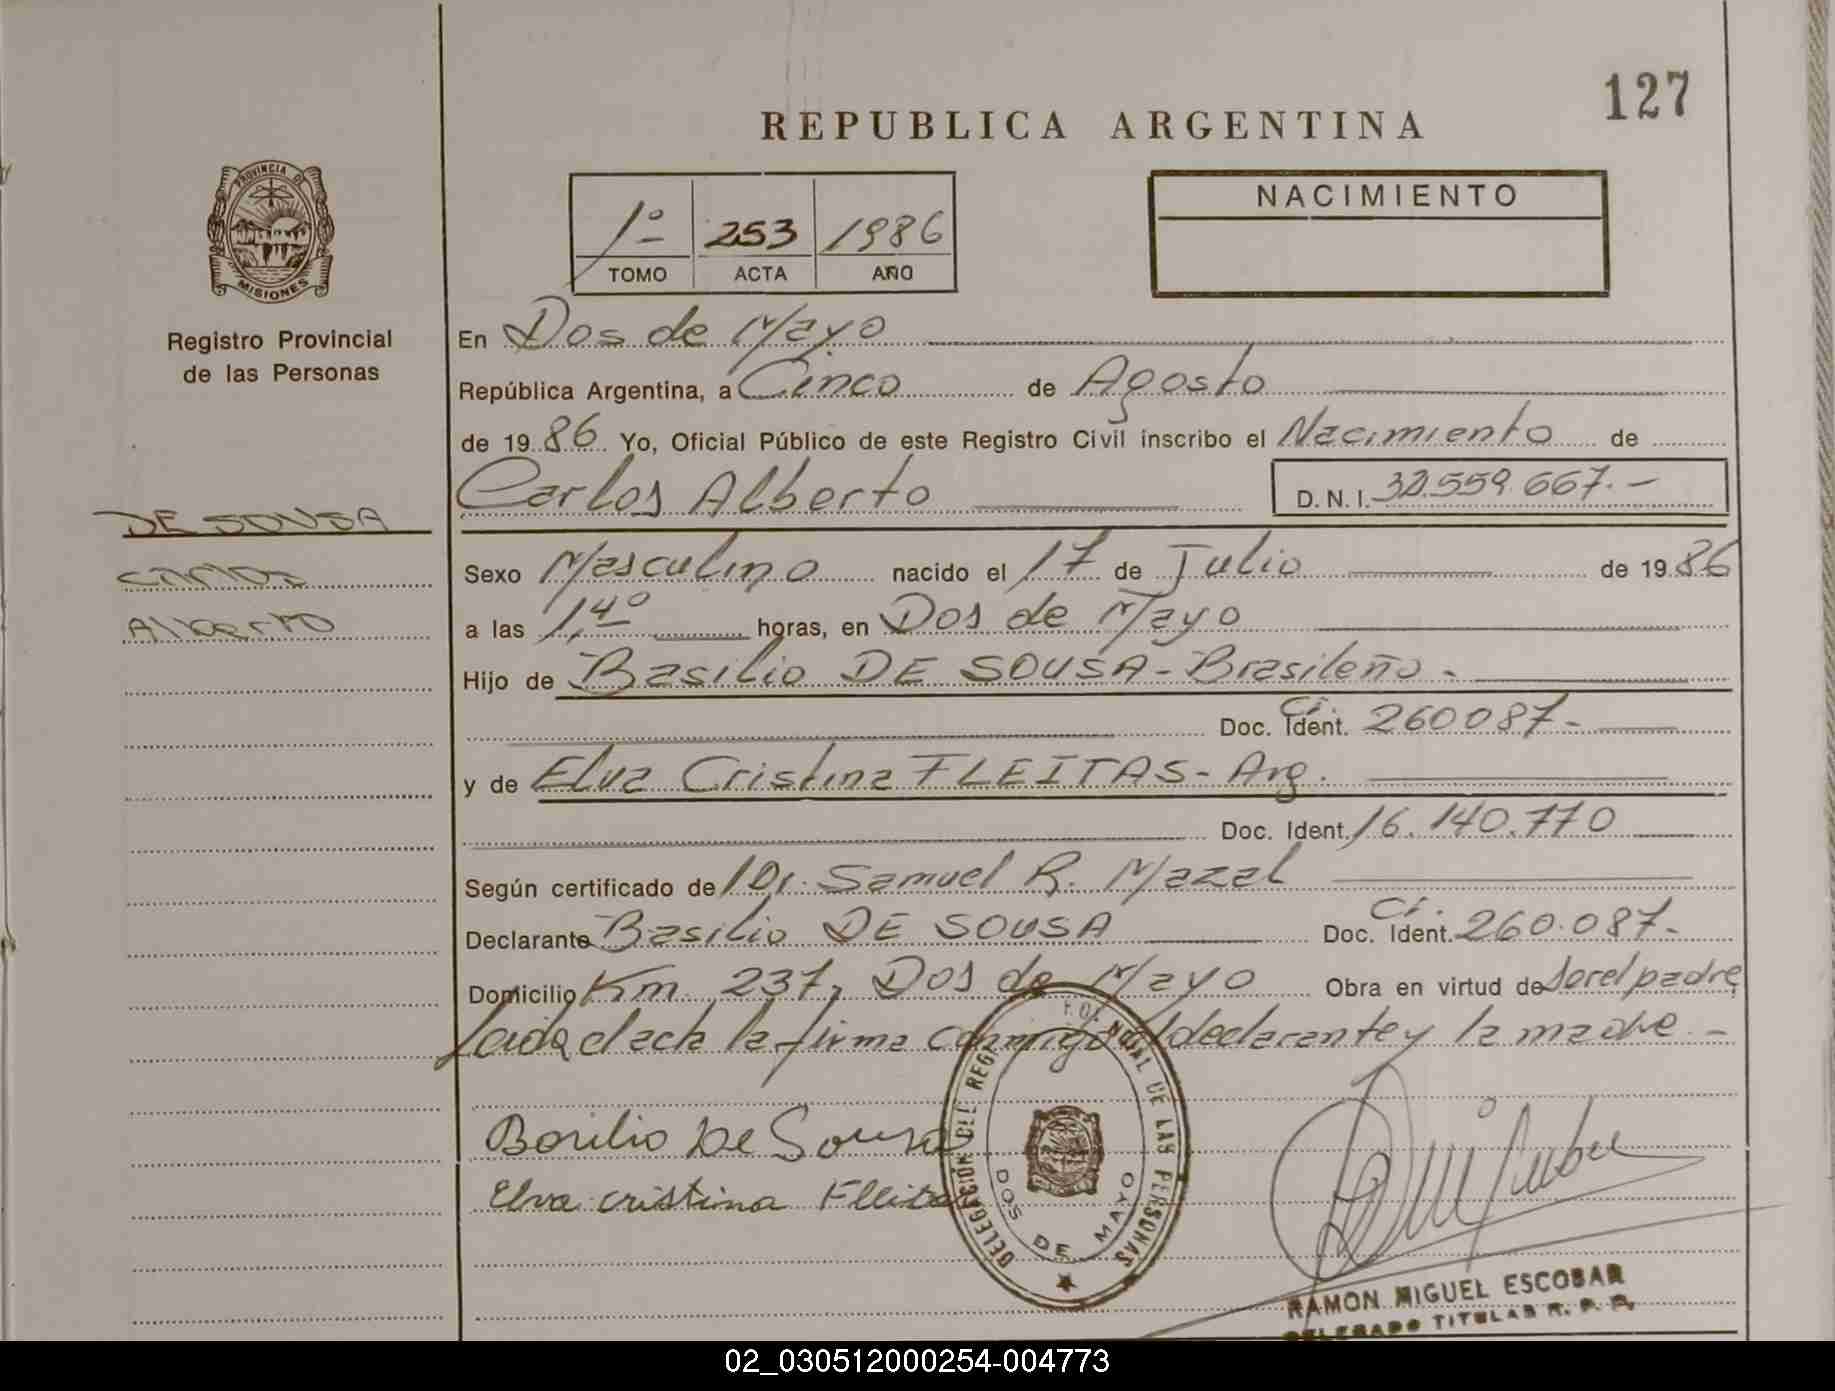 127
REPUBLICA ARGENTINA
PROVINCIA DE
MISIONES
Registro Provincial
de las Personas
1º 253 1986
TOMO ACTA AÑO
NACIMIENTO
En Dos de Mayo
República Argentina, a Cinco de Agosto
de 1986 Yo, Oficial Público de este Registro Civil inscribo el Nacimiento de
Carlos Alberto D.N.I. 32.559.667.-
DE SOUSA
Carlos
Alberto
Sexo Masculino nacido el 17 de Julio de 1986
a las 1,4º horas, en Dos de Mayo
Hijo de Basilio DE SOUSA - Brasileño.-
Doc. Ident. Ci. 260087-
y de Elva Cristina FLEITAS - Arg.
Doc. Ident. 16.140.770
Según certificado de Dr. Samuel R. Mazal
Declarante Basilio DE SOUSA Doc. Ident. Ci. 260.087.-
Domicilio Km. 237, Dos de Mayo Obra en virtud de ser el padre,
Leida el acta la firma conmigo el declarante y la madre.-
Basilio De Sousa
Elva Cristina Fleitas
DELEGACIÓN DEL REGISTRO PROVINCIAL DE LAS PERSONAS
DOS DE MAYO
RAMON MIGUEL ESCOBAR
DELEGADO TITULAR R. P. P.
02_030512000254-004773